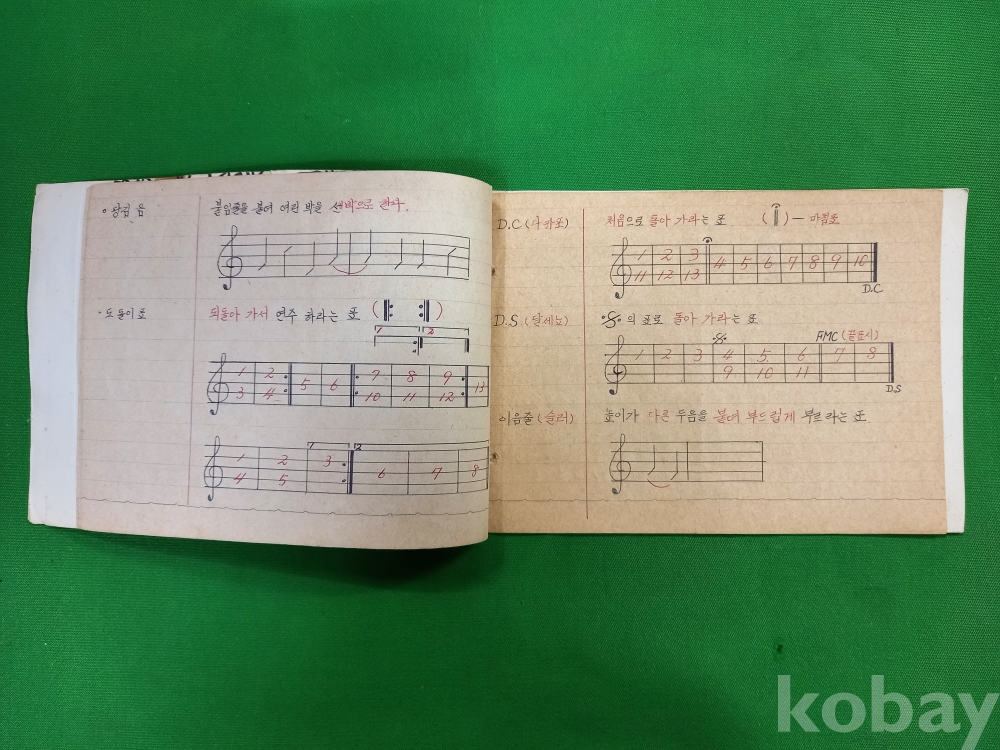 당김 음
붙임줄을 붙여 여린 박을 센박으로 한다.
도돌이표
되돌아 가서 연주 하라는 표 ( )
1 2
1 2 5 6 7 8 9 13
3 4 10 11 12
1 2
1 2 3 6 7 8
4 5
D.C (다카포)
처음으로 돌아 가라는 표 ( ) - 마침표
1 2 3 4 5 6 7 8 9 10
11 12 13
D.C
D.S (달세뇨)
의 표로 돌아 가라는 표
FMC (끝표시)
1 2 3 4 5 6 7 8
9 10 11
D.S
이음줄 (슬러)
높이가 다른 두음을 붙여 부드럽게 부르라는 표
kobay